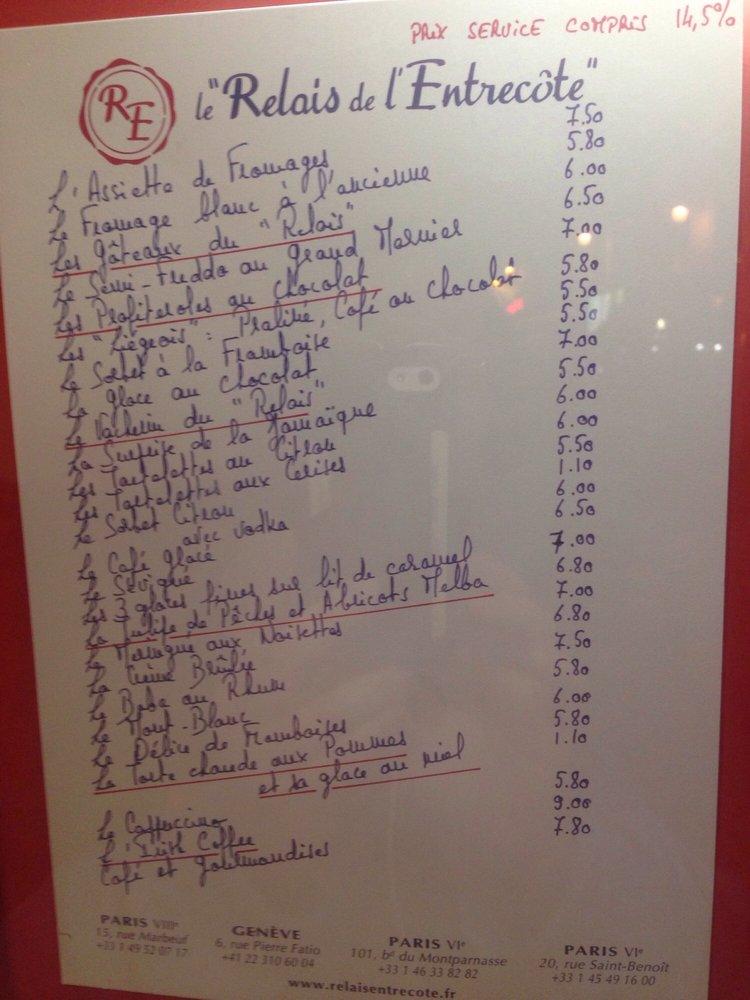 PRIX SERVICE COMPRIS 14,5%
RE
le "Relais de l'Entrecôte"
L'Assiette de Fromages 7.50
Le Fromage blanc à l'ancienne 5.80
Les Gâteaux du "Relais" 6.00
Le Semi-Freddo au Grand Marnier 6.50
Les Profiteroles au chocolat 7.00
Les "Liégeois" : Praliné, Café ou Chocolat 5.80
Le Sorbet à la Framboise 5.50
La glace au chocolat 5.50
Le Vacherin du "Relais" 7.00
La Surprise de la Jamaïque 5.50
Les Tartelettes au Citron 6.00
Les Tartelettes aux Cerises 6.00
Le Sorbet Citron 5.50
avec vodka 1.10
Le Café glacé 6.00
Le Sévigné 6.50
Les 3 glaces fines sur lit de caramel 7.00
La Tulipe de Pêches et Abricots Melba 6.80
La Meringue aux Noisettes 7.00
La Crème Brûlée 6.80
Le Baba au Rhum 7.50
Le Mont-Blanc 5.80
Le Délice de Framboises 6.00
La Tarte chaude aux Pommes 5.80
et sa glace au miel 1.10
Le Cappuccino 5.80
L'Irish Coffee 9.00
Café et gourmandises 7.80
PARIS VIIIe
15, rue Marbeuf
+33 1 49 52 07 17
GENÈVE
6, rue Pierre Fatio
+41 22 310 60 04
PARIS VIe
101, bd du Montparnasse
+33 1 46 33 82 82
PARIS VIe
20, rue Saint-Benoît
+33 1 45 49 16 00
www.relaisentrecote.fr